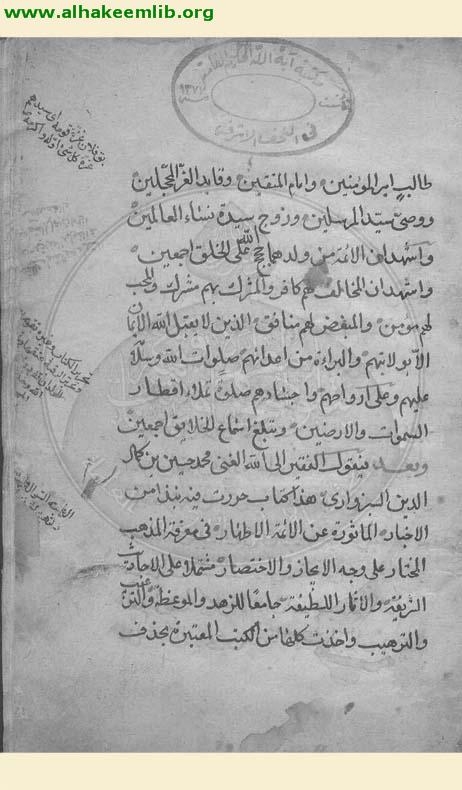 www.alhakeemlib.org
مكتبة آية الله الحكيم العامة
في النجف الاشرف
طالب امير المومنين وامام المتقين وقايد الغر المحجلين
ووصى سيد المرسلين وزوج سيدة نساء العالمين
واشهد ان الائمة من ولدهما حجج الله على الخلق اجمعين
واشهد ان المخالف لهم كافر والمشرك بهم مشرك والمحب
لهم مومن والمبغض لهم منافق الذين لا يقبل الله الايمان
الا بولايتهم والبراءة من اعدائهم صلوات الله وسلامه
عليهم وعلى ارواحهم واجسادهم صلوة تملاء اقطار
السموات والارضين وتبلغ اسماع الخلايق اجمعين
وبعد فيقول الفقير الى الله الغنى محمد حسين بن كمال
الدين السبزوارى هذا كتاب حررت فيه نبذا من
الاخبار الماثورة عن الائمة الاطهار فى معرفة المذهب
المختار على وجه الايجاز والاختصار مشتملا على الاحاديث
الشريفة والاثار اللطيفة جامعا للزهد والموعظة والترغيب
والترهيب واخذت كلها من الكتب المعتبرة بحذف